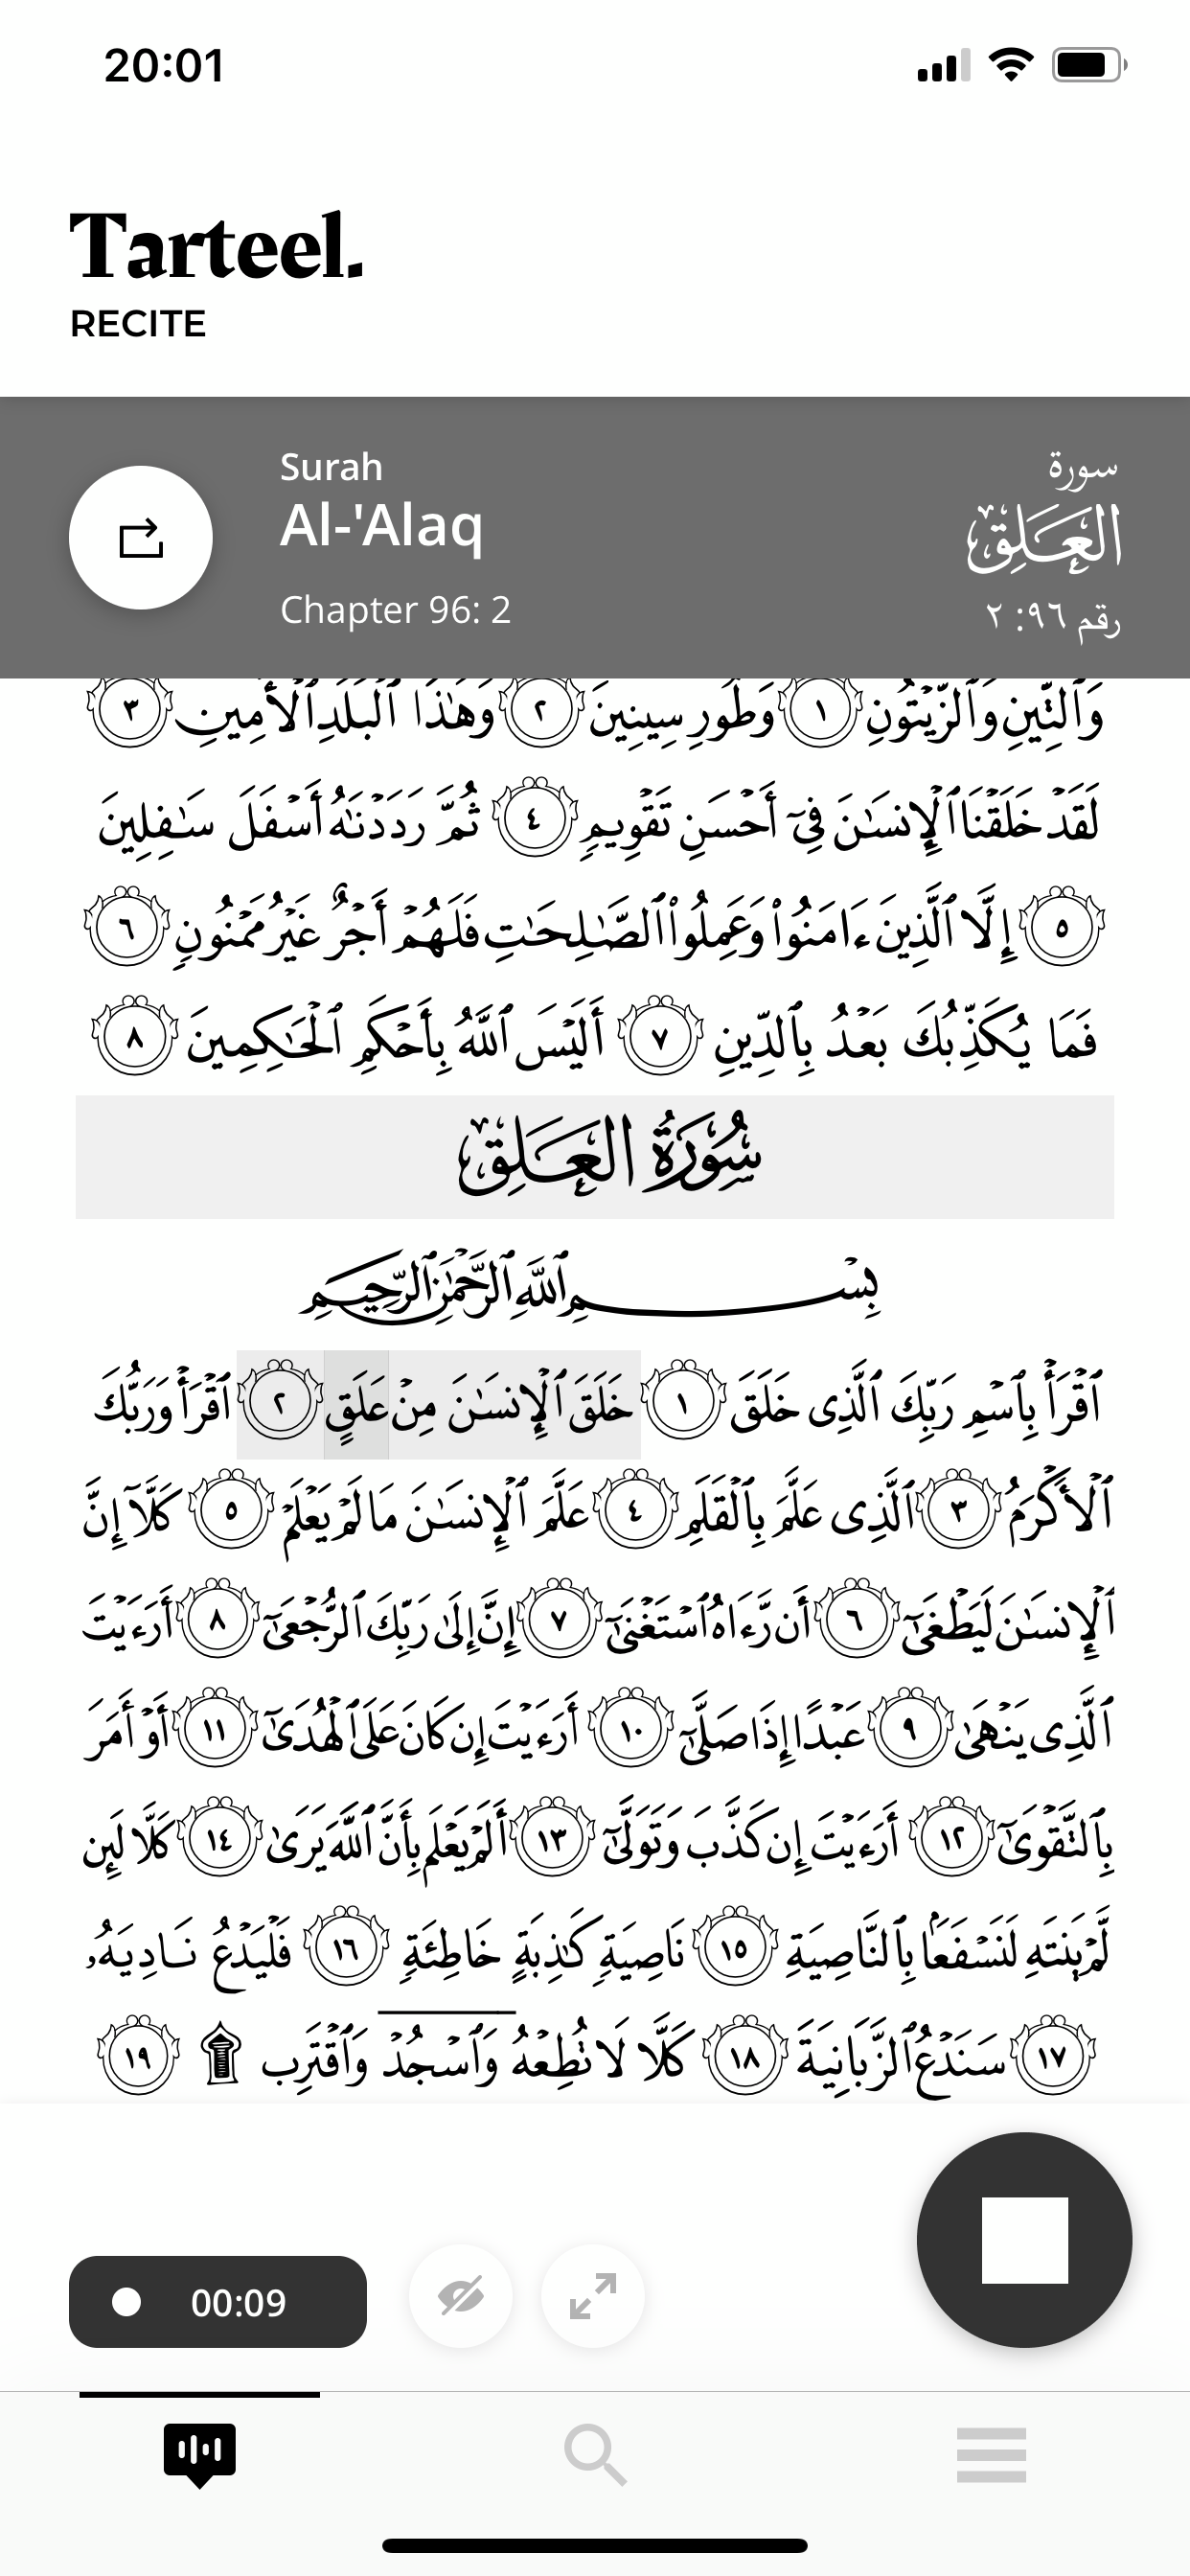 20:01
Tarteel.
RECITE
Surah
Al-'Alaq
Chapter 96: 2
سورة
العلق
رقم ٩٦: ٢
وَٱلتِّينِ وَٱلزَّيْتُونِ ١ وَطُورِ سِينِينَ ٢ وَهَٰذَا ٱلْبَلَدِ ٱلْأَمِينِ ٣
لَقَدْ خَلَقْنَا ٱلْإِنسَٰنَ فِىٓ أَحْسَنِ تَقْوِيمٍ ٤ ثُمَّ رَدَدْنَٰهُ أَسْفَلَ سَٰفِلِينَ
٥ إِلَّا ٱلَّذِينَ ءَامَنُوا۟ وَعَمِلُوا۟ ٱلصَّٰلِحَٰتِ فَلَهُمْ أَجْرٌ غَيْرُ مَمْنُونٍ ٦
فَمَا يُكَذِّبُكَ بَعْدُ بِٱلدِّينِ ٧ أَلَيْسَ ٱللَّهُ بِأَحْكَمِ ٱلْحَٰكِمِينَ ٨
سُورَةُ العَلَق
بِسْمِ ٱللَّهِ ٱلرَّحْمَٰنِ ٱلرَّحِيمِ
ٱقْرَأْ بِٱسْمِ رَبِّكَ ٱلَّذِى خَلَقَ ١ خَلَقَ ٱلْإِنسَٰنَ مِنْ عَلَقٍ ٢ ٱقْرَأْ وَرَبُّكَ
ٱلْأَكْرَمُ ٣ ٱلَّذِى عَلَّمَ بِٱلْقَلَمِ ٤ عَلَّمَ ٱلْإِنسَٰنَ مَا لَمْ يَعْلَمْ ٥ كَلَّآ إِنَّ
ٱلْإِنسَٰنَ لَيَطْغَىٰٓ ٦ أَن رَّءَاهُ ٱسْتَغْنَىٰٓ ٧ إِنَّ إِلَىٰ رَبِّكَ ٱلرُّجْعَىٰٓ ٨ أَرَءَيْتَ
ٱلَّذِى يَنْهَىٰ ٩ عَبْدًا إِذَا صَلَّىٰٓ ١٠ أَرَءَيْتَ إِن كَانَ عَلَى ٱلْهُدَىٰٓ ١١ أَوْ أَمَرَ
بِٱلتَّقْوَىٰٓ ١٢ أَرَءَيْتَ إِن كَذَّبَ وَتَوَلَّىٰٓ ١٣ أَلَمْ يَعْلَم بِأَنَّ ٱللَّهَ يَرَىٰ ١٤ كَلَّا لَئِن
لَّمْ يَنتَهِ لَنَسْفَعًۢا بِٱلنَّاصِيَةِ ١٥ نَاصِيَةٍ كَٰذِبَةٍ خَاطِئَةٍ ١٦ فَلْيَدْعُ نَادِيَهُۥ
١٧ سَنَدْعُ ٱلزَّبَانِيَةَ ١٨ كَلَّا لَا تُطِعْهُ وَٱسْجُدْ وَٱقْتَرِب ۩ ١٩
00:09